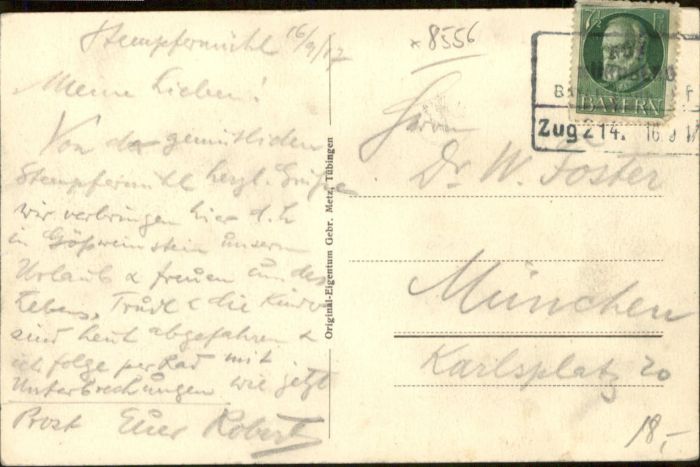 Stempfermühl 16/9/17
Meine Lieben!
Von der gemütlichen
Stempfermühl herzl. Grüße
wir verbringen hier d. h.
in Gößweinstein unsern
Urlaub & freuen uns des
Lebens, Trudl & die Kinder
sind heut abgefahren &
ich folge per Rad mit
Unterbrechungen wie jetzt
Prost Euer Robert
Original-Eigentum Gebr. Metz, Tübingen
x 8556
BAYERN
Zug 214. 16 9 17
Herrn
Dr. W. Foster
München
Karlsplatz 20
18,-